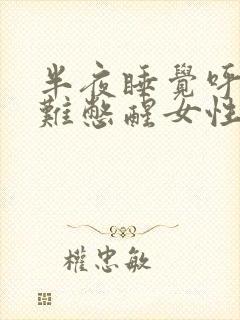 半夜睡覺呼
難憋醒女性
權忠敏